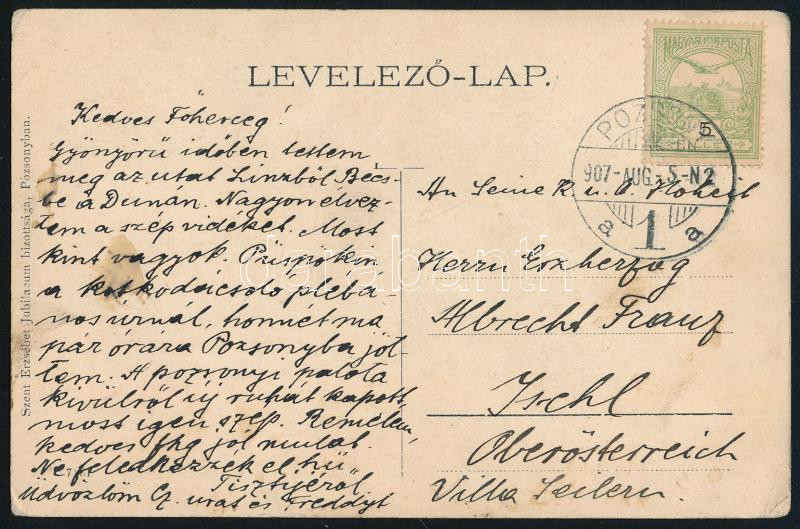 LEVELEZŐ-LAP.
MAGYAR KIR. POSTA
5
POZSONY
907-AUG.-5-N2
a 1 a
Szent Erzsébet Jubilaeum bizottsága, Pozsonyban.
Kedves Főherceg!
Gyönyörű időben tettem
meg az utat Linzből Bécs-
be a Dunán. Nagyon élvez-
tem a szép vidéket. Most
kint vagyok Püspökin
a kotkodácsoló plébá-
nos urnál, honnét ma
pár órára Pozsonyba jöt-
tem. A pozsonyi palota
kivülről új ruhát kapott,
most igen szép. Remélem,
kedves fhg jól mulat.
Ne feledkezzék el hű
Tisztjéről
Üdvözlöm Cz. urat és Freddyt
An Seine K. u. K. Hoheit
Herrn Erzherzog
Albrecht Franz
Ischl
Oberösterreich
Villa Seilern.
darabanth